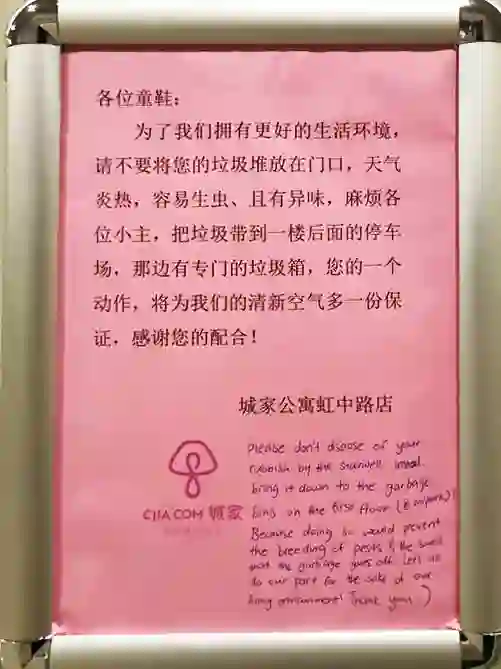 各位童鞋：
为了我们拥有更好的生活环境，
请不要将您的垃圾堆放在门口，天气
炎热，容易生虫、且有异味，麻烦各
位小主，把垃圾带到一楼后面的停车
场，那边有专门的垃圾箱，您的一个
动作，将为我们的清新空气多一份保
证，感谢您的配合！
城家公寓虹中路店
CJIA.COM 城家
Please don't dispose of your
rubbish by the stairwell
bring it down to the garbage
bins on the first floor
Because doing so would prevent
the breeding of pests & the smell
that the garbage gives off. Let's all
do our part for the sake of our
living environment! Thank you